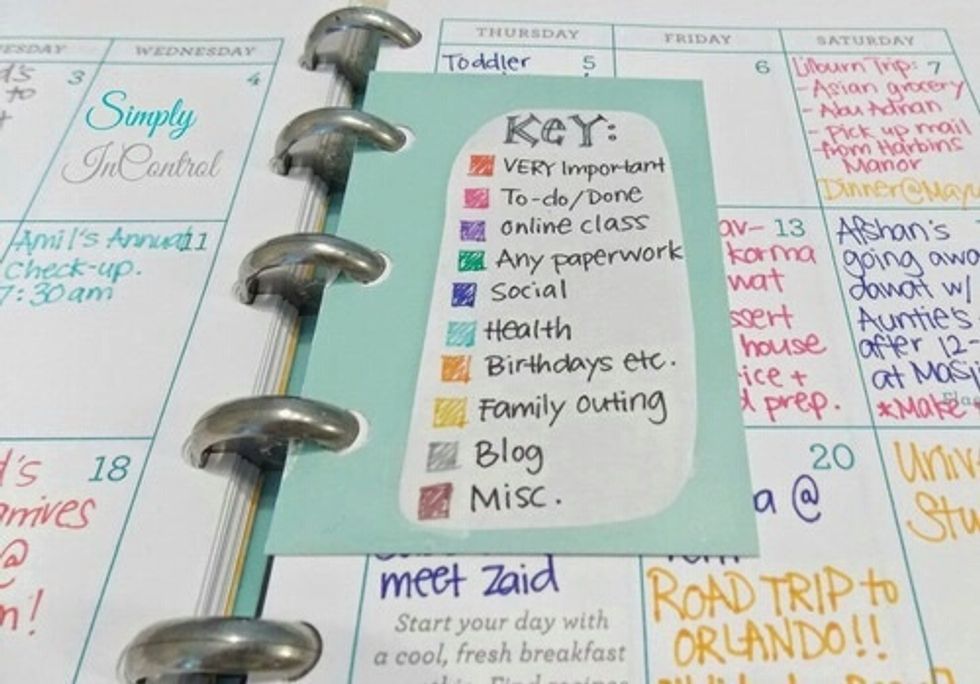 WEDNESDAY
THURSDAY
FRIDAY
SATURDAY
3
4
5
6
7
to
Simply
InControl
Toddler
Lilburn Trip:
- Asian grocery
- Abu Adnan
- pick up mail
-from Harbins
Manor
KEY:
VERY Important
To-do/Done
online class
Any paperwork
Social
Health
Birthdays etc.
Family Outing
Blog
Misc.
Amil's Annual
11
check-up.
7:30am
13
korma
house
prep.
Afshan's
going
dawat w/
Auntie's
after 12-
at
*Make
18
arrives
@
20
@
meet Zaid
Start your day with
a cool, fresh breakfast
ROAD TRIP to
ORLANDO!!